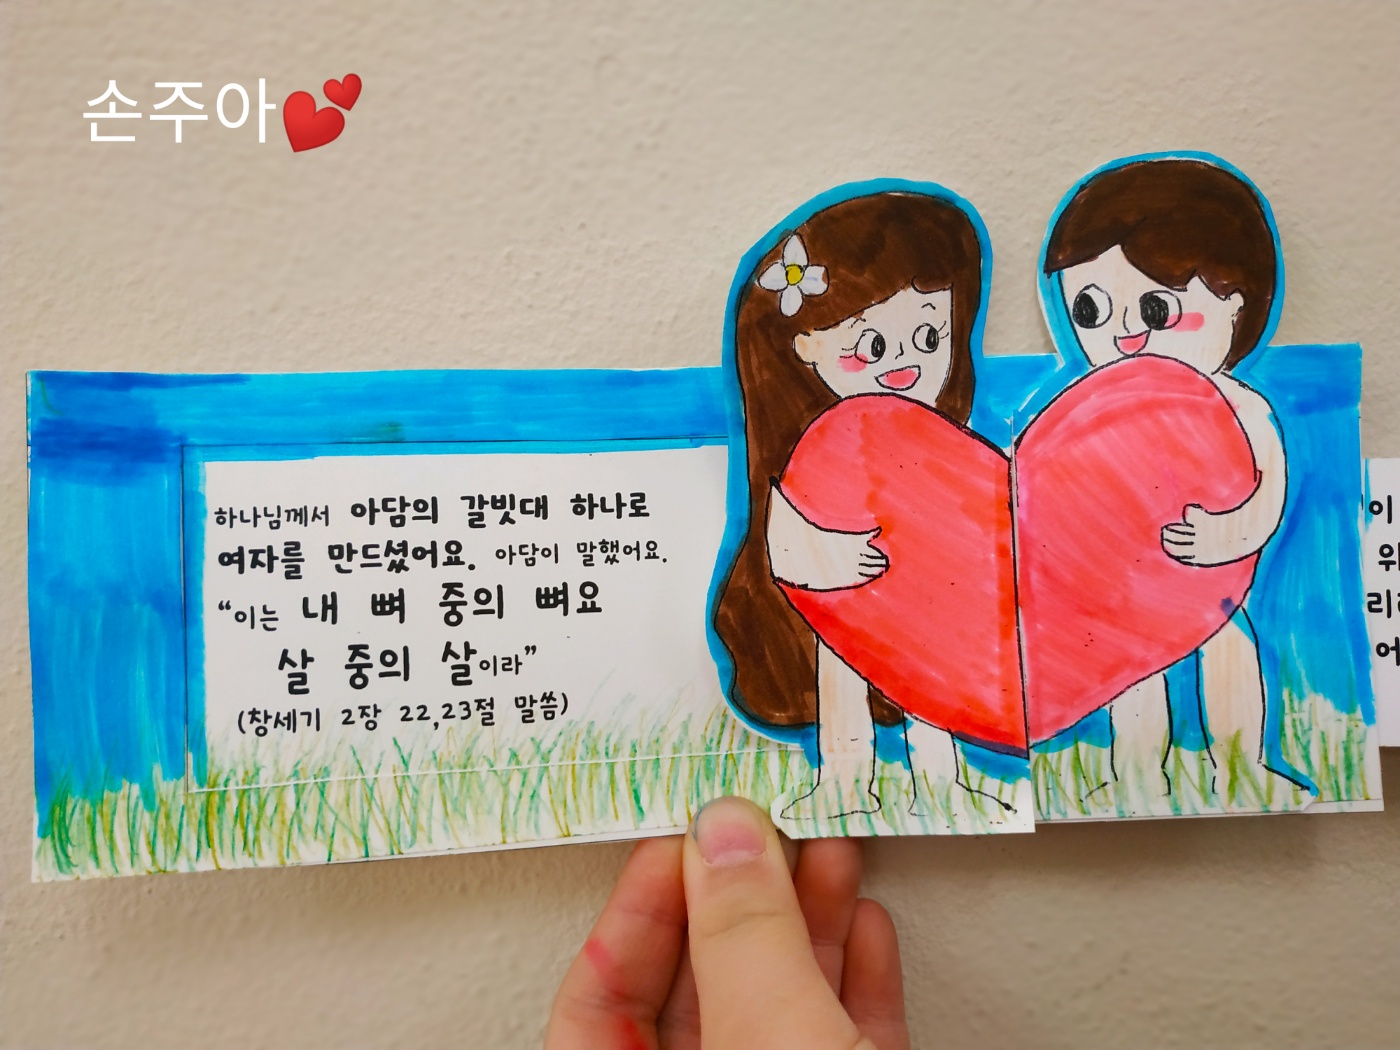 손주아💕
하나님께서 아담의 갈빗대 하나로
여자를 만드셨어요. 아담이 말했어요.
“이는 내 뼈 중의 뼈요
살 중의 살이라”
(창세기 2장 22,23절 말씀)
이
위
어